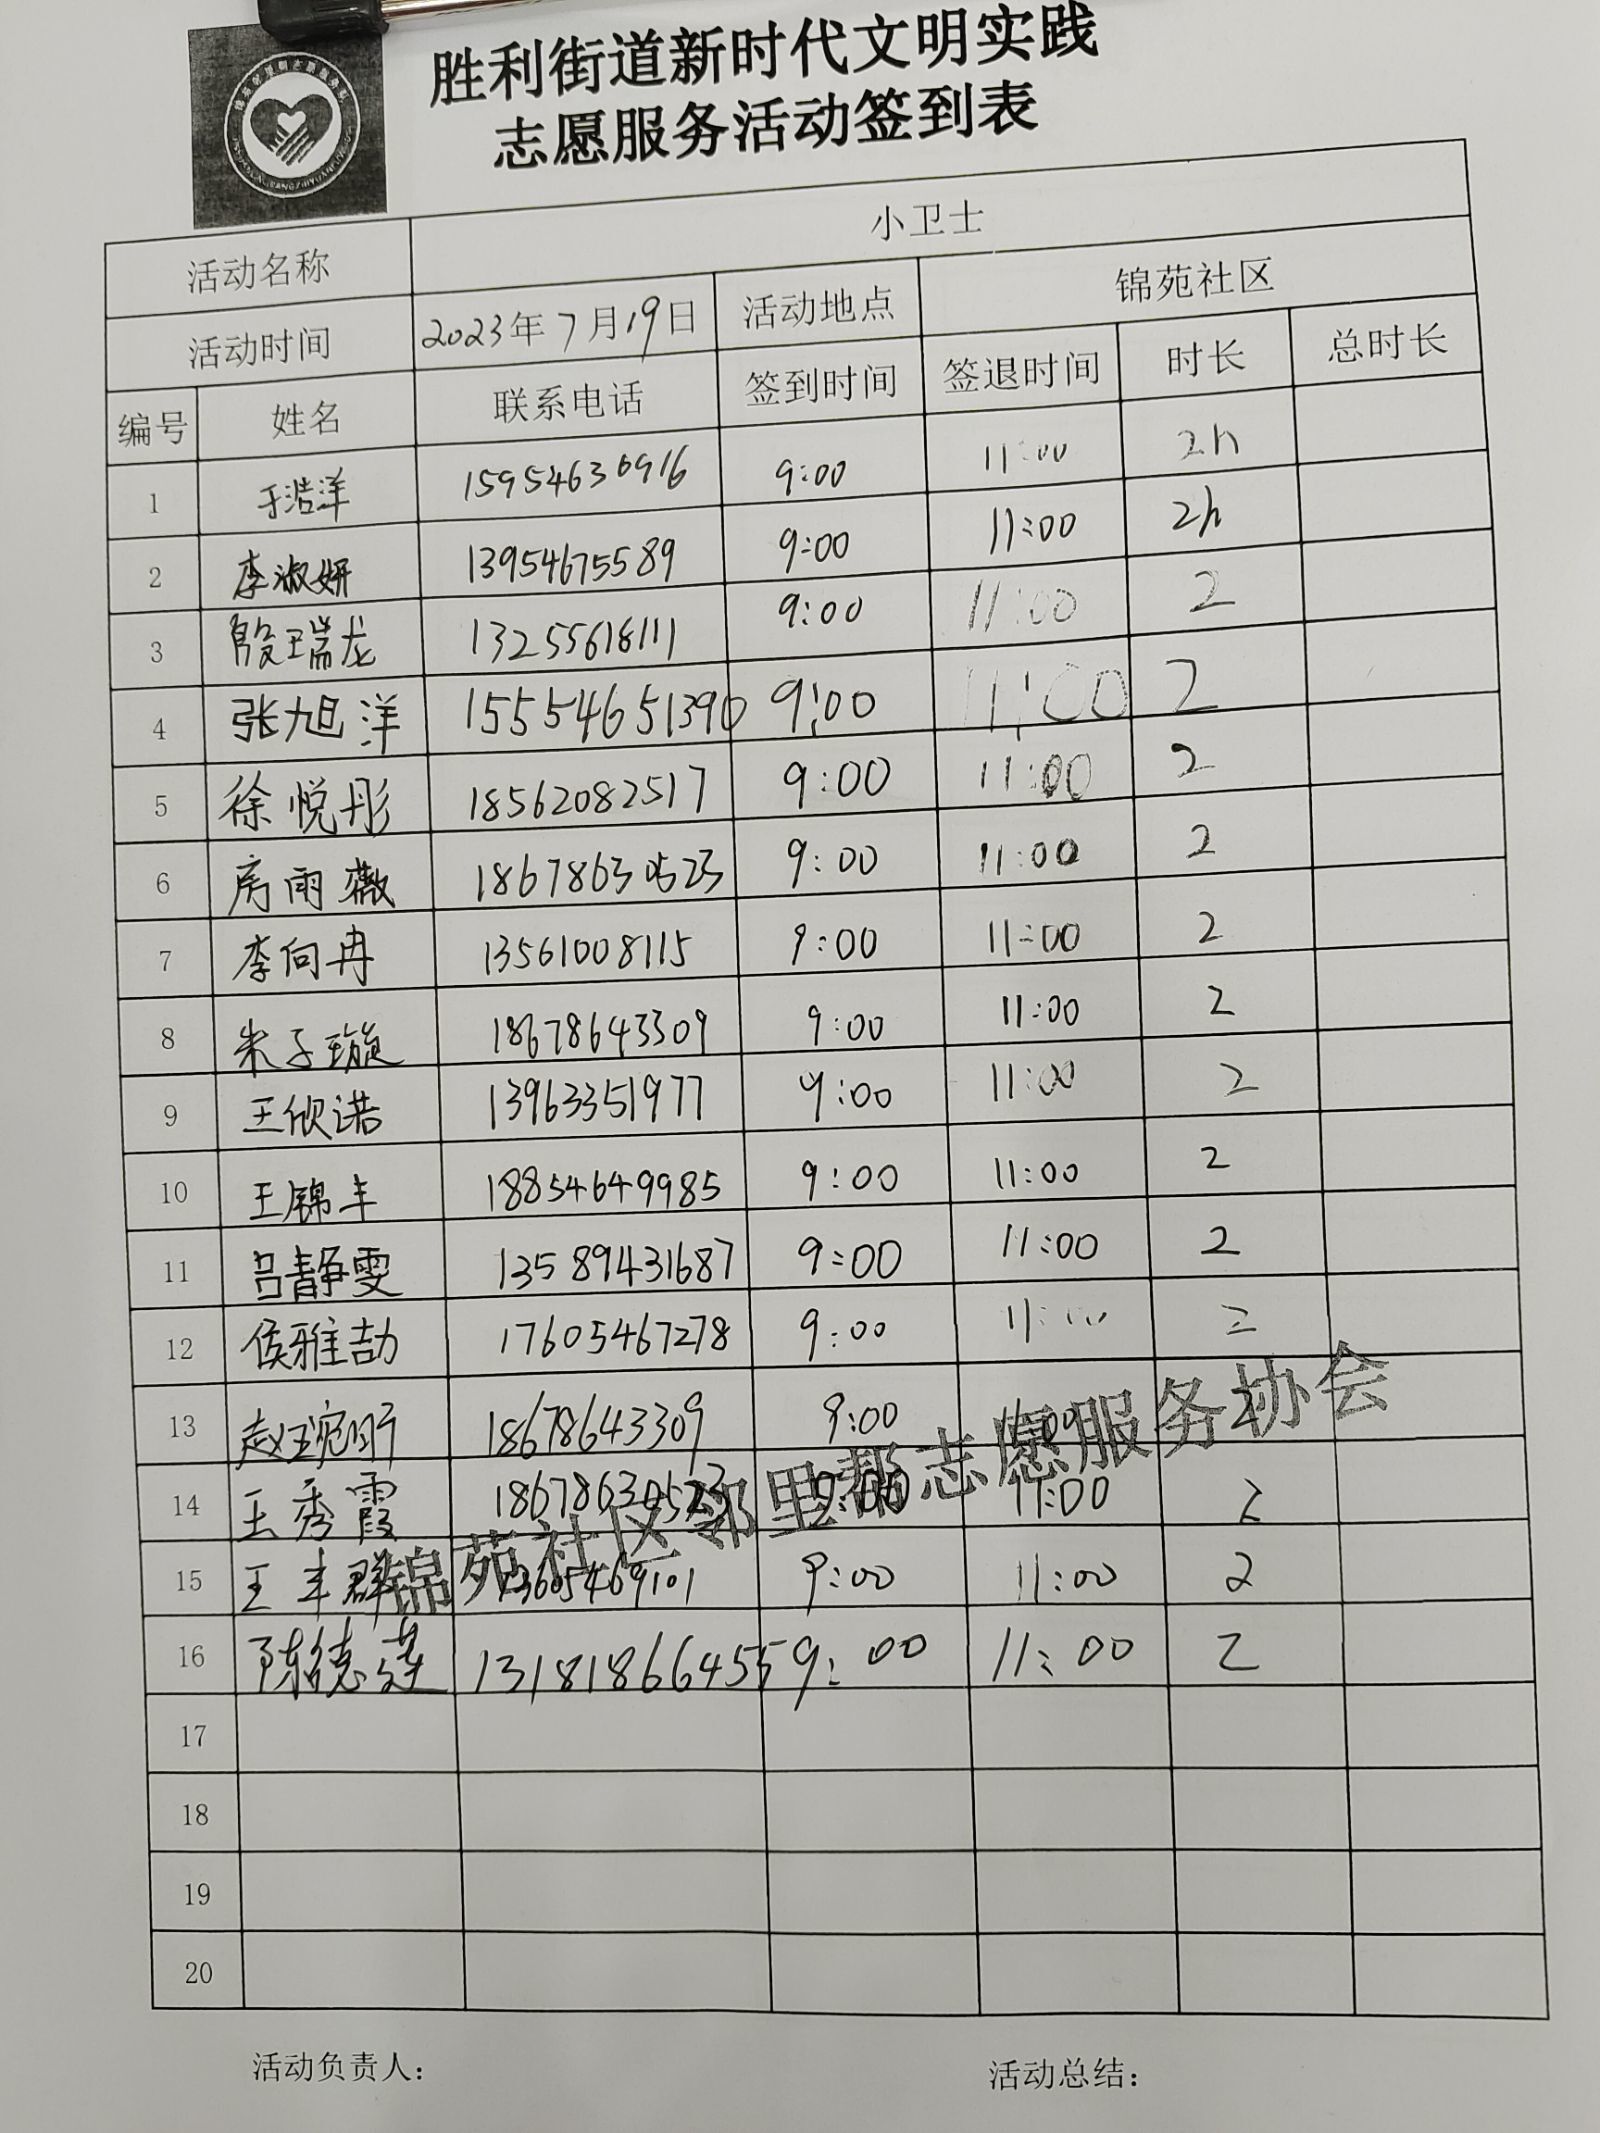 胜利街道新时代文明实践
志愿服务活动签到表
活动名称 小卫士
活动时间 2023年7月19日 活动地点 锦苑社区
编号 姓名 联系电话 签到时间 签退时间 时长 总时长
1 于浩洋 15954630916 9:00 11:00 2h
2 李淑妍 13954675589 9:00 11:00 2h
3 殷瑞龙 13255618111 9:00 11:00 2
4 张旭洋 15554651390 9:00 11:00 2
5 徐悦彤 18562082517 9:00 11:00 2
6 房雨薇 18678630523 9:00 11:00 2
7 李向冉 13561008115 9:00 11:00 2
8 米子璇 18678643309 9:00 11:00 2
9 王欣诺 13963351977 9:00 11:00 2
10 王锦丰 18854649985 9:00 11:00 2
11 吕静雯 13589431687 9:00 11:00 2
12 侯雅喆 17605467278 9:00 11:00 2
13 赵琬昕 18678643309 9:00 11:00 2
14 王秀霞 18678630523 9:00 11:00 2
15 王丰群 13605469101 9:00 11:00 2
16 陈德莲 13181866455 9:00 11:00 2
锦苑社区邻里帮志愿服务协会
17
18
19
20
活动负责人： 活动总结：